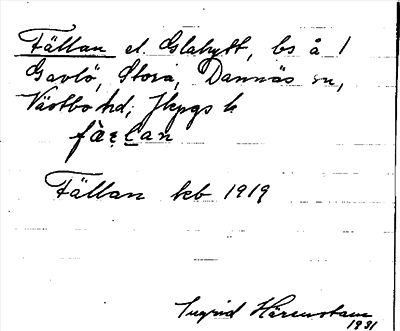 Fällan el. Glahytt, bs å 1
Gavlö, Stora, Dannäs sn,
Västbo hd, Jkpgs l.
fæ̀l̥an
Fällan kb 1919
Ingrid Härenstam
1931